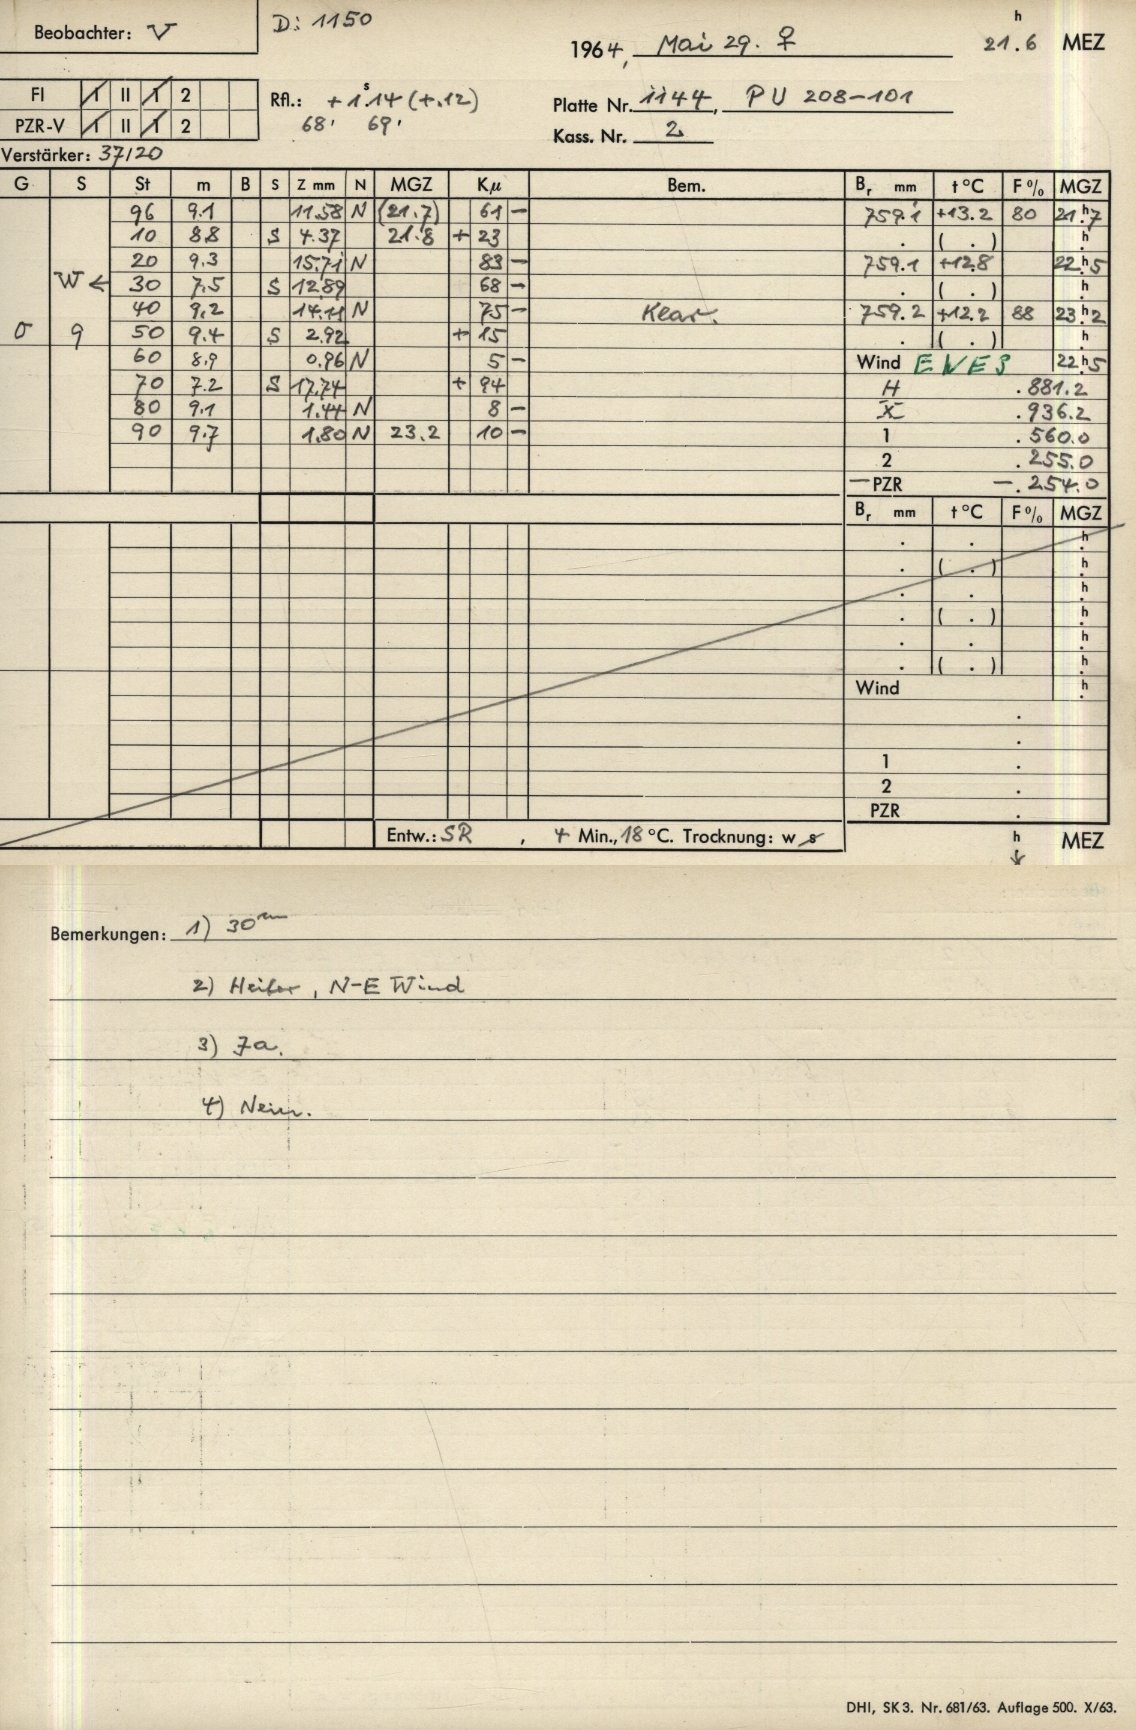 Beobachter: V
D: 1150
1964, Mai 29. ♀
21.6 h MEZ
FI I II 1 2
PZR-V I II 1 2
Rfl.: +1ˢ14 (+.12)
68' 69'
Platte Nr. 1144, PU 208-101
Kass. Nr. 2
Verstärker: 37/20
G S St m B S Z mm N MGZ Kμ Bem. Br mm t°C F% MGZ
96 9.1 11.58 N (21.7) 61 - 759.1 +13.2 80 21.h7
10 8.8 S 4.37 21.8 + 23 . ( . ) h.
20 9.3 15.71 N 83 - 759.1 +12.8 22.h5
W ← 30 7.5 S 12.89 68 - . ( . ) h.
40 9.2 14.11 N 75 - Klar. 759.2 +12.2 88 23.h2
0 9 50 9.4 S 2.92 + 15 . ( . ) h.
60 8.9 0.96 N 5 - Wind ENE3 22.h5
70 7.2 S 17.74 + 94 H .881.2
80 9.1 1.44 N 8 - X .936.2
90 9.7 1.80 N 23.2 10 - 1 .560.0
2 .255.0
- PZR -.254.0
Br mm t°C F% MGZ
. . h.
. ( . ) h.
. . h.
. ( . ) h.
. . h.
. ( . ) h.
Wind h.
.
.
1 .
2 .
PZR .
Entw.: SR , 4 Min., 18 °C. Trocknung: w s
h MEZ
Bemerkungen: 1) 30ᵐ
2) Heiter, N-E Wind
3) Ja.
4) Nein.
DHI, SK 3. Nr. 681/63. Auflage 500. X/63.